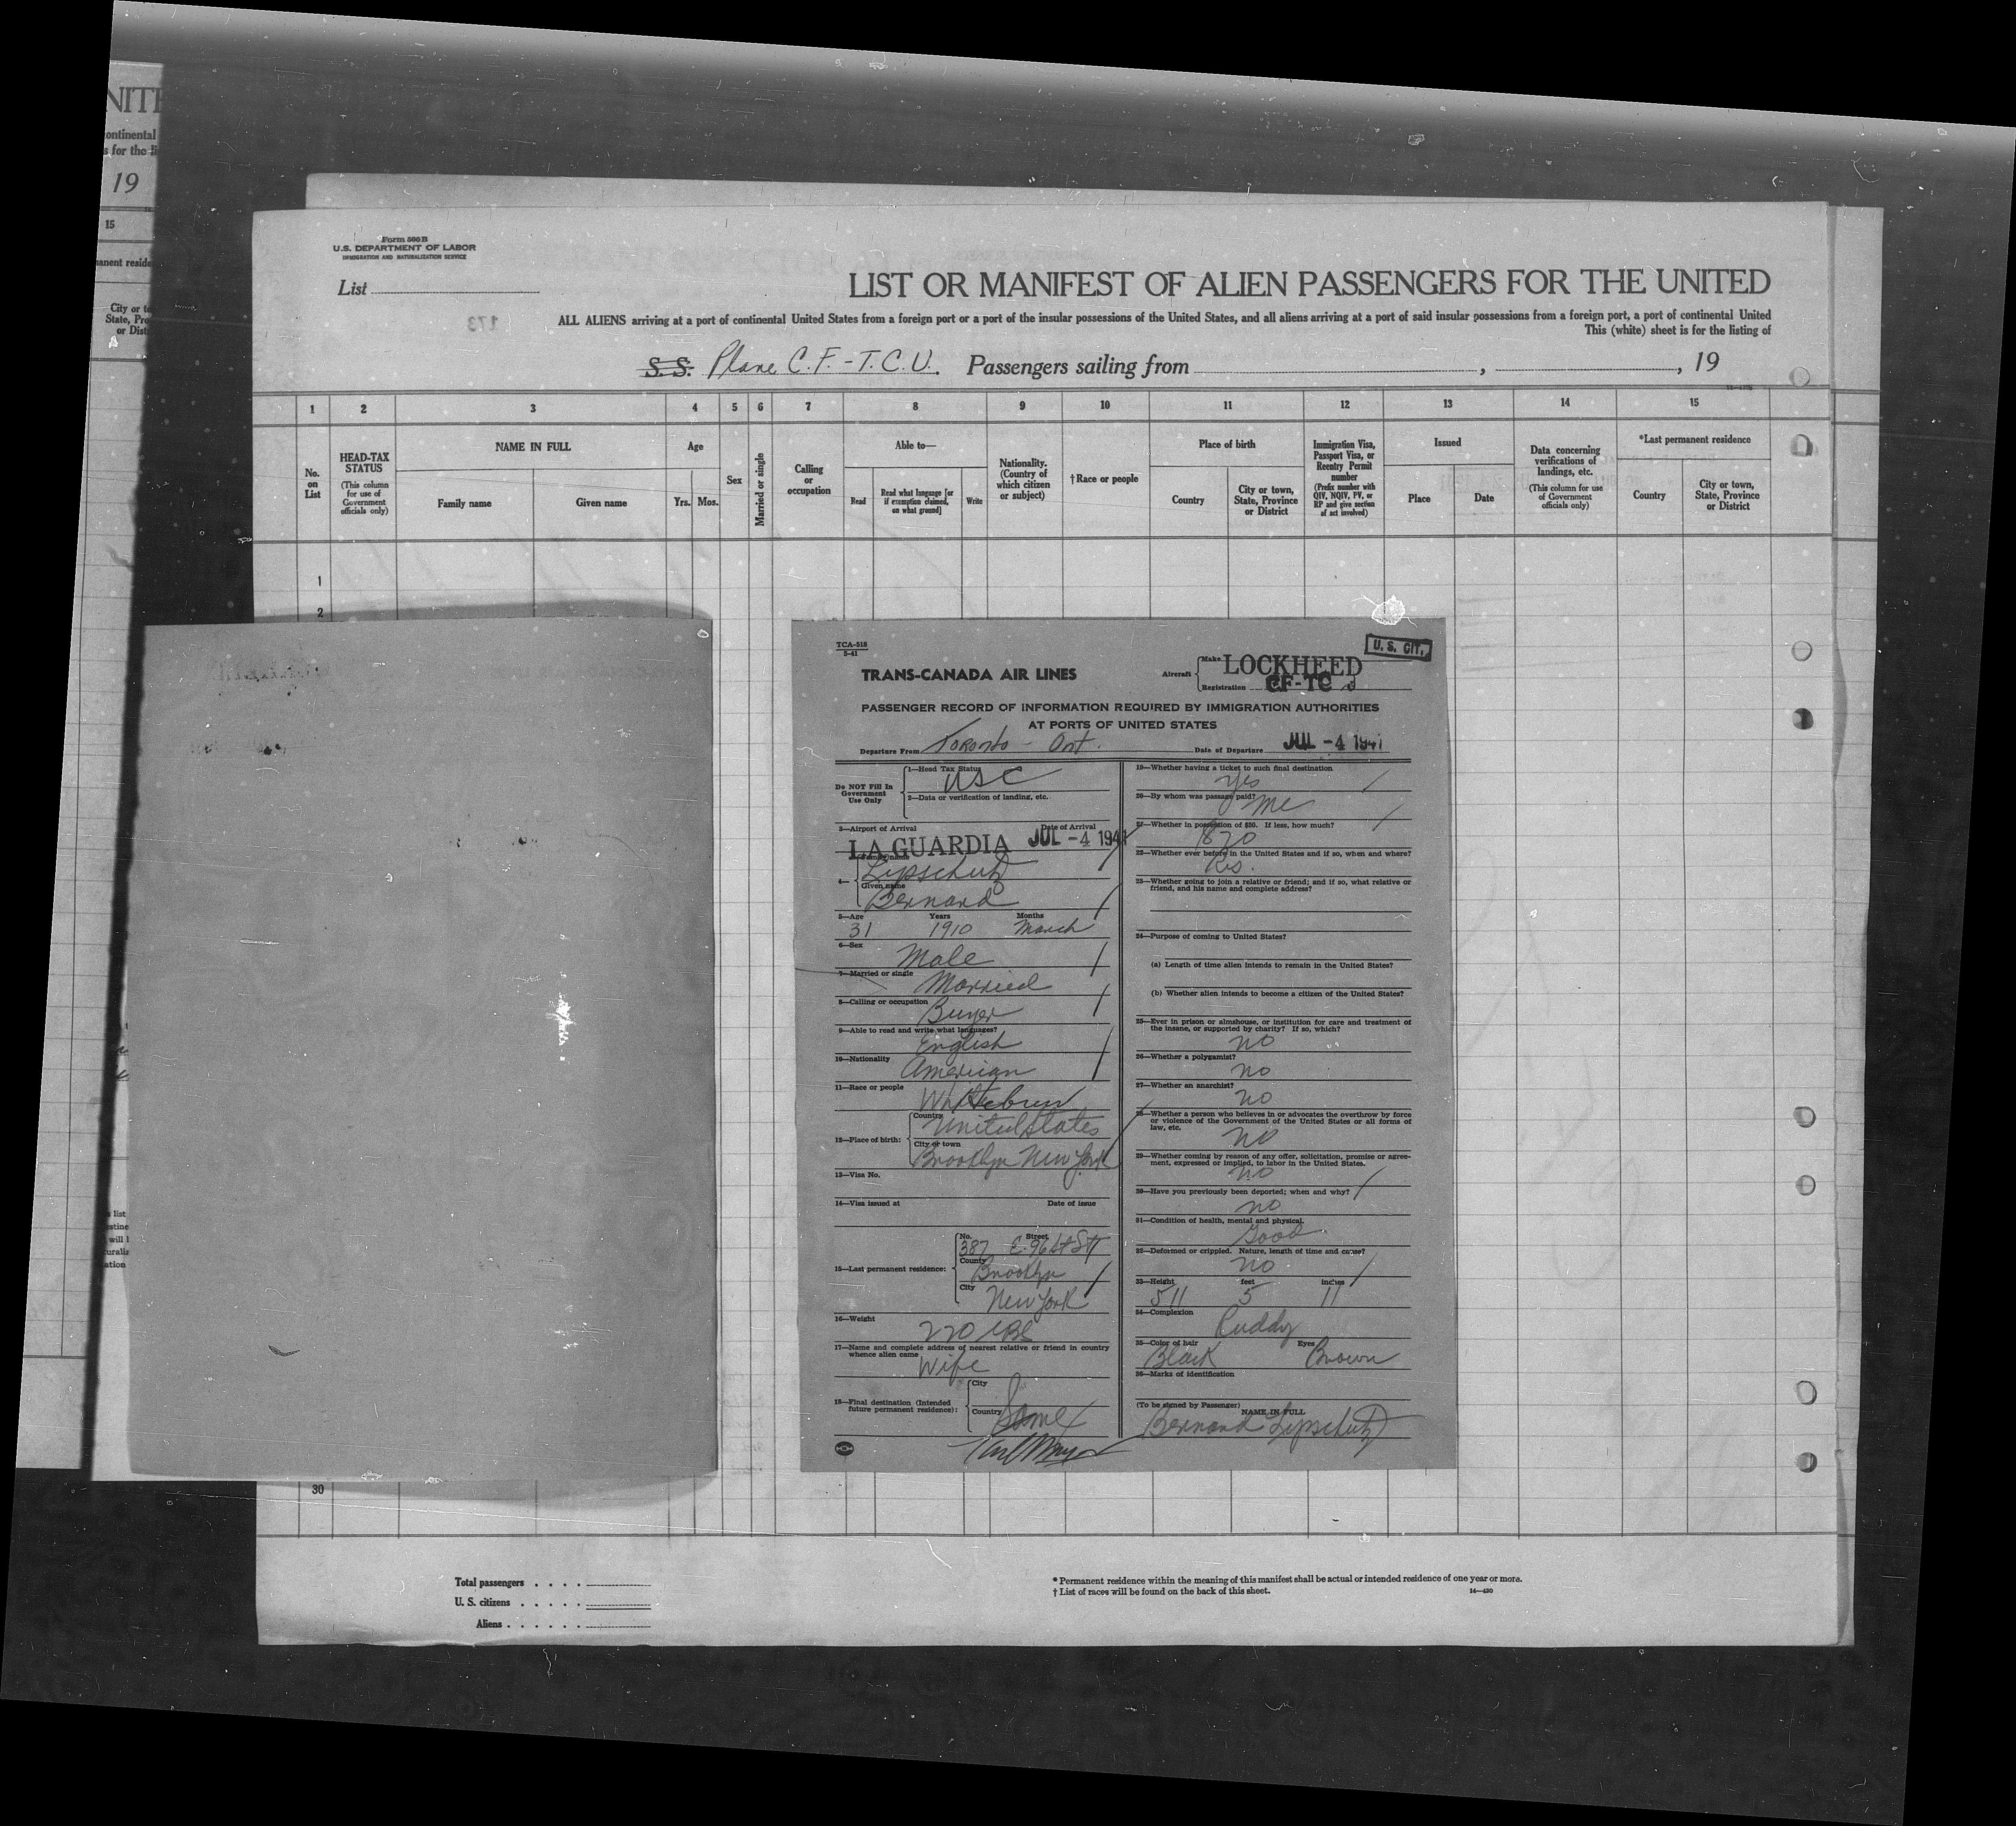 NITE
ontinental
s for the li
19
15
anent reside
City or to
State, Pro
or Dist
Form 500 B
U.S. DEPARTMENT OF LABOR
IMMIGRATION AND NATURALIZATION SERVICE
List
173
LIST OR MANIFEST OF ALIEN PASSENGERS FOR THE UNITED
ALL ALIENS arriving at a port of continental United States from a foreign port or a port of the insular possessions of the United States, and all aliens arriving at a port of said insular possessions from a foreign port, a port of continental United
This (white) sheet is for the listing of
S.S. Plane C.F.-T.C.U. Passengers sailing from , , 19
1 2 3 4 5 6 7 8 9 10 11 12 13 14 15
No. on List
HEAD-TAX STATUS (This column for use of Government officials only)
NAME IN FULL
Family name Given name
Age
Yrs. Mos.
Sex
Married or single
Calling or occupation
Able to—
Read Read what language [or if exemption claimed, on what ground] Write
Nationality. (Country of which citizen or subject)
†Race or people
Place of birth
Country City or town, State, Province or District
Immigration Visa, Passport Visa, or Reentry Permit number (Prefix number with QIV, NQIV, PV, or RP and give section of act involved)
Issued
Place Date
Data concerning verifications of landings, etc. (This column for use of Government officials only)
*Last permanent residence
Country City or town, State, Province or District
1
2
TCA-518
5-41
U. S. CIT.
TRANS-CANADA AIR LINES
Aircraft Make LOCKHEED
Registration CF-TC
PASSENGER RECORD OF INFORMATION REQUIRED BY IMMIGRATION AUTHORITIES
AT PORTS OF UNITED STATES
Departure From Toronto - Ont. Date of Departure JUL -4 1941
Do NOT Fill In Government Use Only
1—Head Tax Status USC
2—Data or verification of landing, etc.
3—Airport of Arrival Date of Arrival
LA GUARDIA JUL -4 1941
4— Family name
Lipschutz
Given name
Bernard
5—Age Years Months
31 1910 March
6—Sex
Male
7—Married or single
Married
8—Calling or occupation
Buyer
9—Able to read and write what languages?
English
10—Nationality
American
11—Race or people
White Hebrew
12—Place of birth: Country
United States
City or town
Brooklyn New York
13—Visa No.
14—Visa issued at Date of issue
15—Last permanent residence: No. Street
387 E. 96th St
County
Brooklyn
City
New York
16—Weight
220 LBS
17—Name and complete address of nearest relative or friend in country whence alien came
Wife
18—Final destination (Intended future permanent residence): City
Country Same
19—Whether having a ticket to such final destination
Yes
20—By whom was passage paid?
Me
21—Whether in possession of $50. If less, how much?
22—Whether ever before in the United States and if so, when and where?
23—Whether going to join a relative or friend; and if so, what relative or friend, and his name and complete address?
24—Purpose of coming to United States?
(a) Length of time alien intends to remain in the United States?
(b) Whether alien intends to become a citizen of the United States?
25—Ever in prison or almshouse, or institution for care and treatment of the insane, or supported by charity? If so, which?
no
26—Whether a polygamist?
no
27—Whether an anarchist?
no
28—Whether a person who believes in or advocates the overthrow by force or violence of the Government of the United States or all forms of law, etc.
no
29—Whether coming by reason of any offer, solicitation, promise or agreement, expressed or implied, to labor in the United States.
no
30—Have you previously been deported; when and why?
no
31—Condition of health, mental and physical.
Good
32—Deformed or crippled. Nature, length of time and cause?
no
33—Height feet inches
5 11 5 11
34—Complexion
Ruddy
35—Color of hair Eyes
Black Brown
36—Marks of identification
(To be signed by Passenger) NAME IN FULL
Bernard Lipschutz
30
Total passengers
U. S. citizens
Aliens
* Permanent residence within the meaning of this manifest shall be actual or intended residence of one year or more.
† List of races will be found on the back of this sheet.
14—430